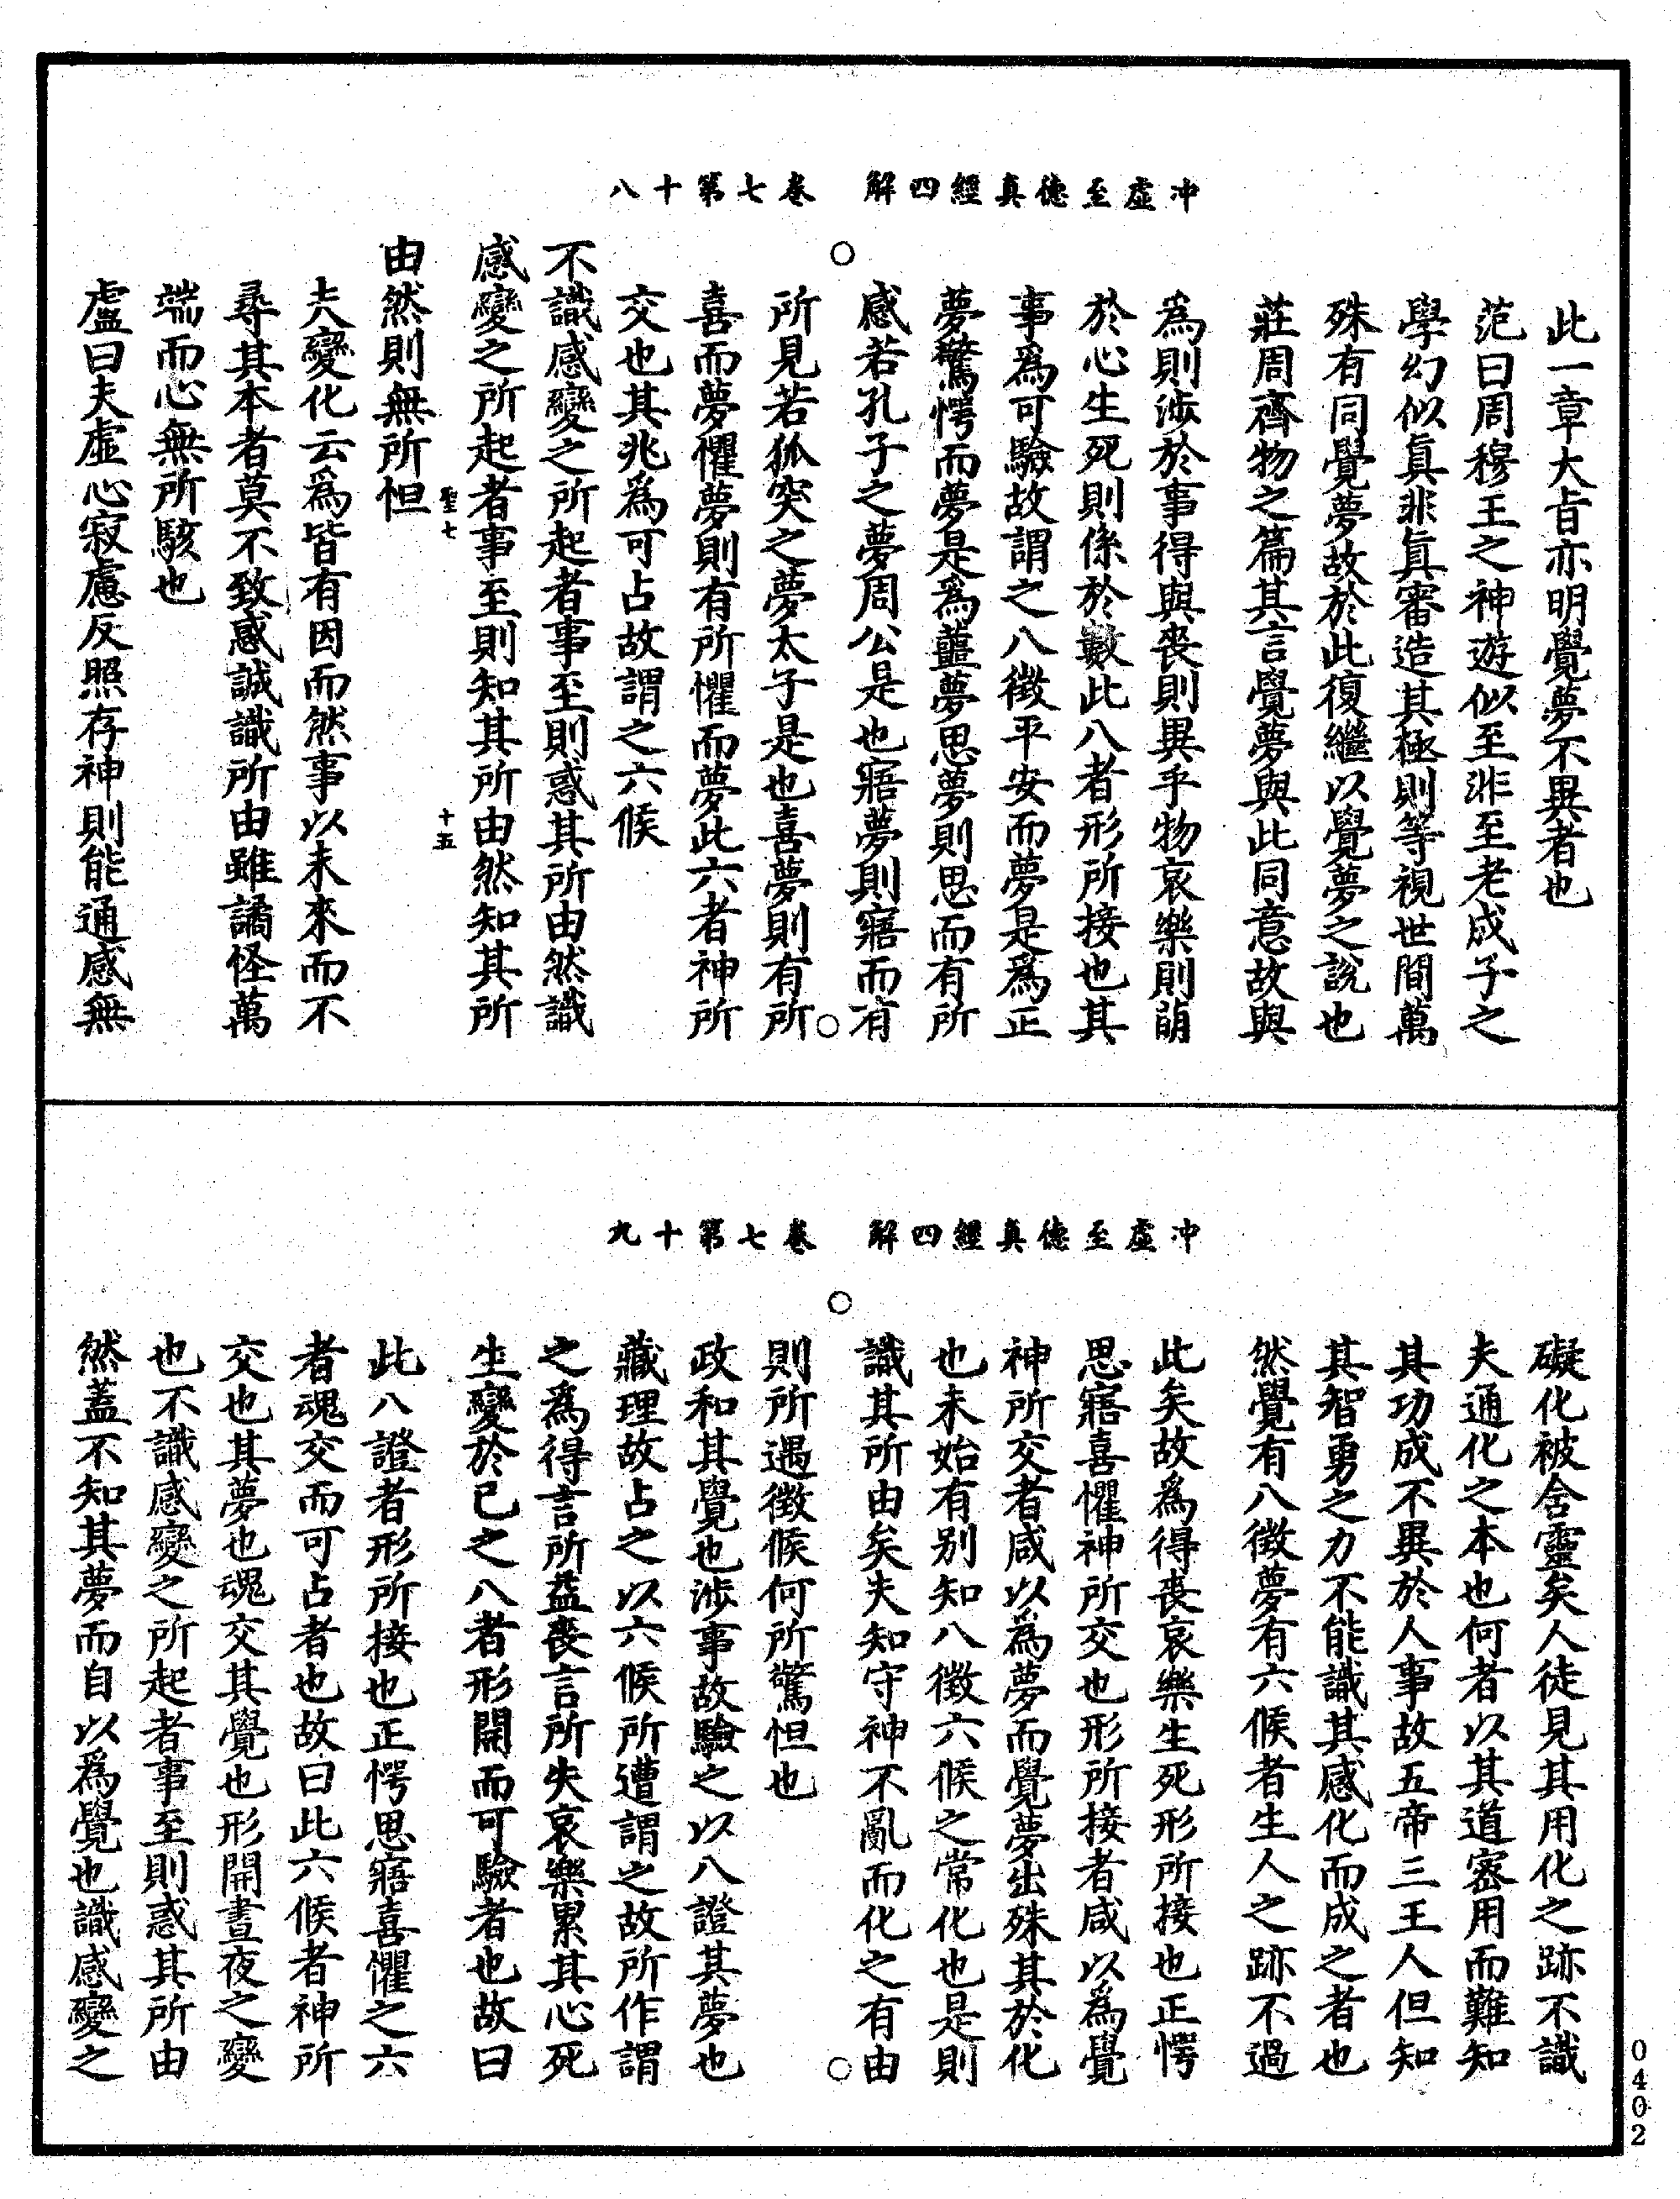 冲虛至德真經四解　卷七第十八
此一章大旨亦明覺夢不異者也
范曰周穆王之神遊似至非至老成子之
學幻似真非真審造其極則等視世間萬
殊有同覺夢故於此復繼以覺夢之說也
莊周齊物之篇其言覺夢與此同意故與
爲則涉於事得與喪則異乎物哀樂則萌
於心生死則係於數此八者形所接也其
事爲可驗故謂之八徵平安而夢是爲正
夢驚愕而夢是爲蘁夢思夢則思而有所
感若孔子之夢周公是也寤夢則寤而有
所見若狐突之夢太子是也喜夢則有所
喜而夢懼夢則有所懼而夢此六者神所
交也其兆爲可占故謂之六候
不識感變之所起者事至則惑其所由然識
感變之所起者事至則知其所由然知其所
聖七　十五
由然則無所怛
夫變化云爲皆有因而然事以未來而不
尋其本者莫不致惑誠識所由雖譎怪萬
端而心無所駭也
盧曰夫虛心寂慮反照存神則能通感無
冲虛至德真經四解　卷七第十九
礙化被含靈矣人徒見其用化之跡不識
夫通化之本也何者以其道密用而難知
其功成不異於人事故五帝三王人但知
其智勇之力不能識其感化而成之者也
然覺有八徵夢有六候者生人之跡不過
此矣故爲得喪哀樂生死形所接也正愕
思寤喜懼神所交也形所接者咸以爲覺
神所交者咸以爲夢而覺夢出殊其於化
也未始有别知八徵六候之常化也是則
識其所由矣夫知守神不亂而化之有由
則所遇徵候何所驚怛也
政和其覺也涉事故驗之以八證其夢也
藏理故占之以六候所遭謂之故所作謂
之爲得言所益喪言所失哀樂累其心死
生變於己之八者形開而可驗者也故曰
此八證者形所接也正愕思寤喜懼之六
者魂交而可占者也故曰此六候者神所
交也其夢也魂交其覺也形開晝夜之變
也不識感變之所起者事至則惑其所由
然蓋不知其夢而自以爲覺也識感變之
0402